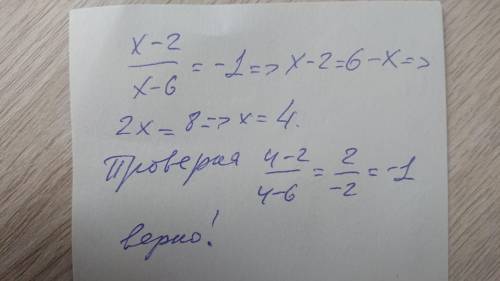 x-2/x-6 = -1 => x-2=6-x =>
2x = 8 => x = 4.
Проверия 4-2/4-6 = 2/-2 = -1
верно!